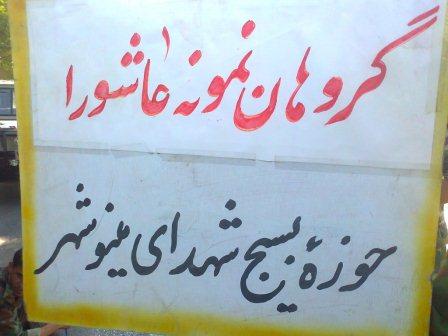 گروهان نمونه عاشورا
حوزهٔ بسیج شهدای مینوشهر